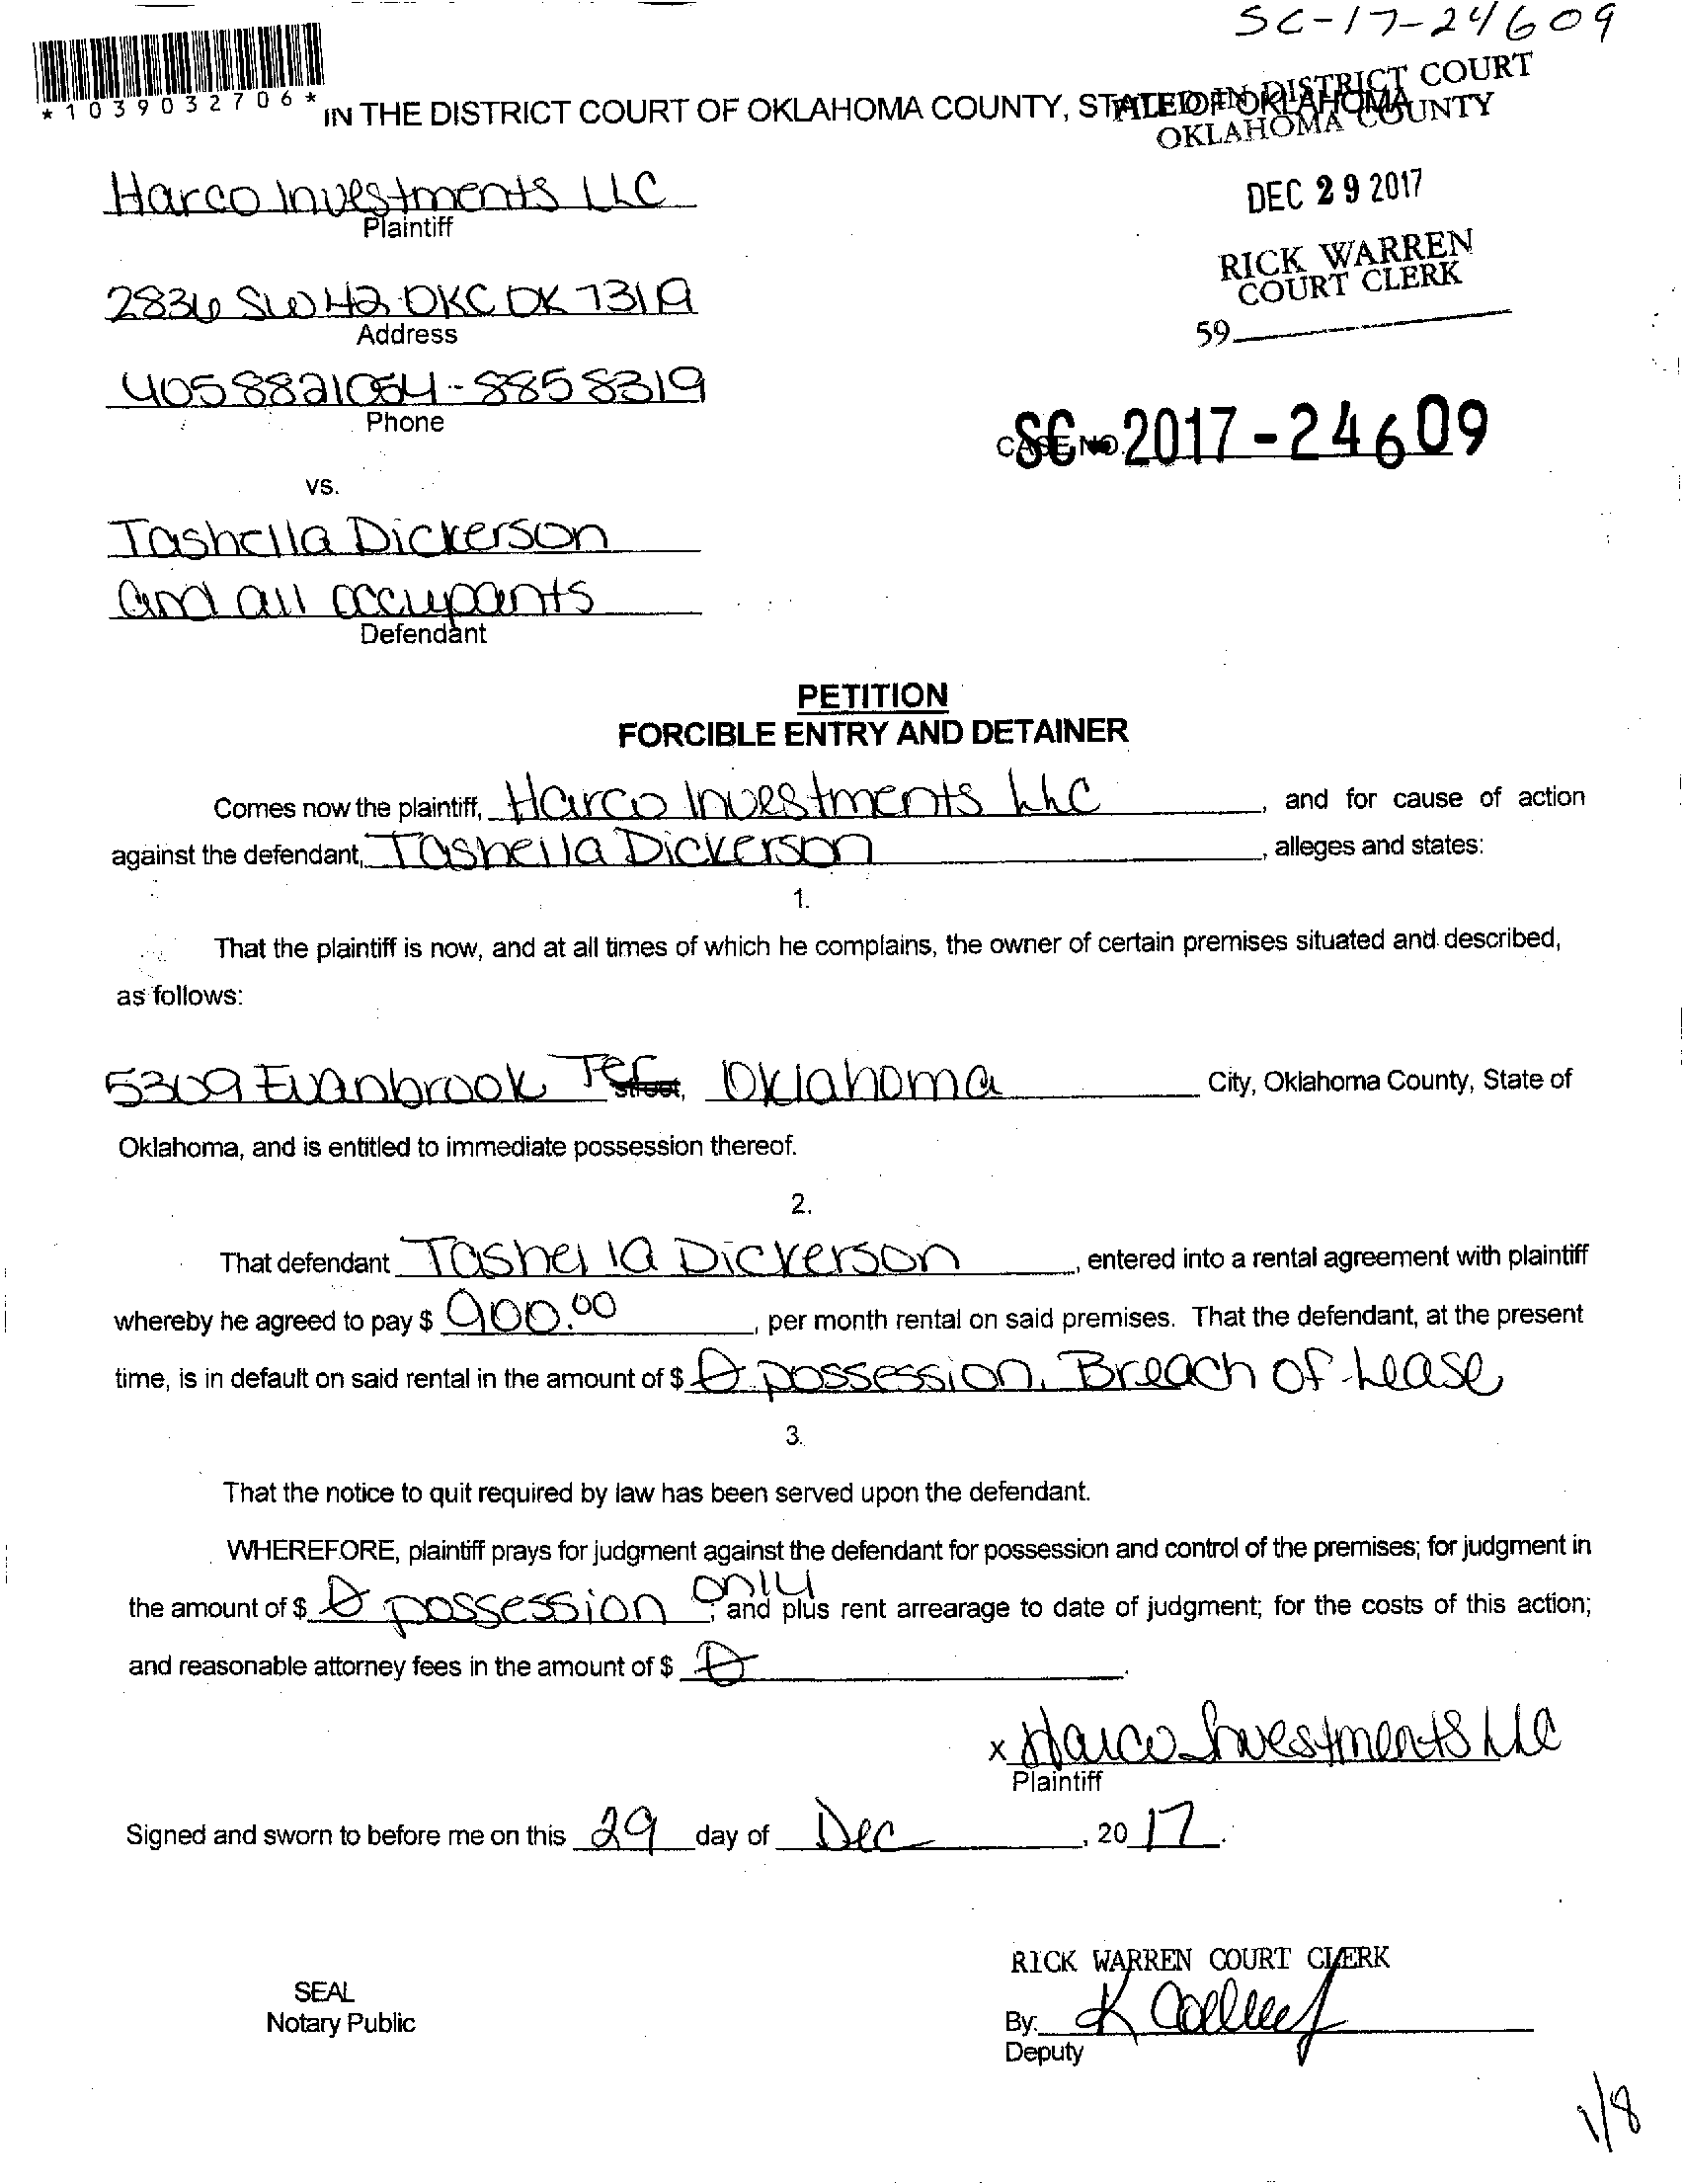 SC-17-24609
*1039032706*
IN THE DISTRICT COURT OF OKLAHOMA COUNTY, STATE OF OKLAHOMA
FILED IN DISTRICT COURT
OKLAHOMA COUNTY
Harco Investments LLC
Plaintiff
DEC 29 2017
RICK WARREN
COURT CLERK
2836 SW 42 OKC OK 73119
Address
59
4058821054-8858319
Phone
CASE NO.
SC-2017-24609
vs.
Tashella Dickerson
and all occupants
Defendant
PETITION
FORCIBLE ENTRY AND DETAINER
Comes now the plaintiff, Harco Investments LLC, and for cause of action
against the defendant, Tashella Dickerson, alleges and states:
1.
That the plaintiff is now, and at all times of which he complains, the owner of certain premises situated and described,
as follows:
5309 Evanbrook Ter Street, Oklahoma City, Oklahoma County, State of
Oklahoma, and is entitled to immediate possession thereof.
2.
That defendant Tashella Dickerson, entered into a rental agreement with plaintiff
whereby he agreed to pay $ 900.00, per month rental on said premises. That the defendant, at the present
time, is in default on said rental in the amount of $ 0 possession. Breach of Lease
3.
That the notice to quit required by law has been served upon the defendant.
WHEREFORE, plaintiff prays for judgment against the defendant for possession and control of the premises; for judgment in
the amount of $ 0 possession only; and plus rent arrearage to date of judgment; for the costs of this action;
and reasonable attorney fees in the amount of $ 0.
x Harco Investments LLC
Plaintiff
Signed and sworn to before me on this 29 day of Dec, 2017.
RICK WARREN COURT CLERK
SEAL
Notary Public
By: K
Deputy
1/8